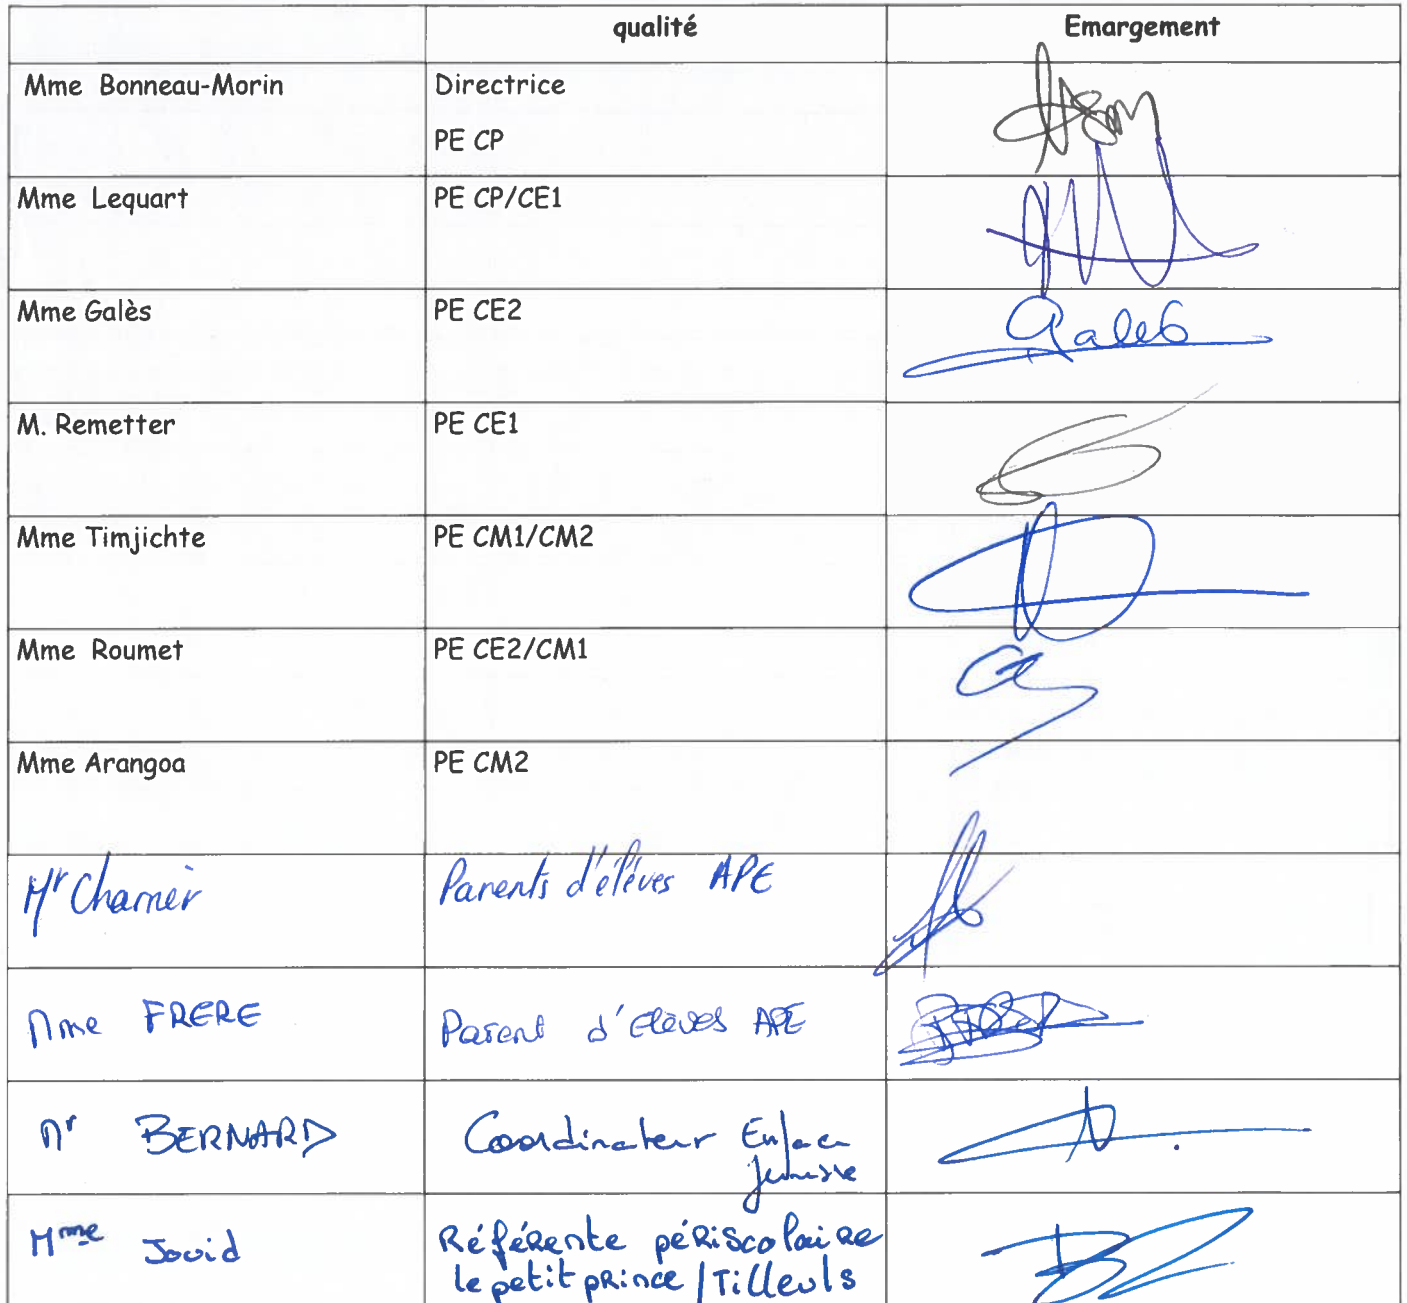 qualité Emargement
Mme Bonneau-Morin Directrice
PE CP
Mme Lequart PE CP/CE1
Mme Galès PE CE2
M. Remetter PE CE1
Mme Timjichte PE CM1/CM2
Mme Roumet PE CE2/CM1
Mme Arangoa PE CM2
Mr Parents d'élèves APE
Mme FRERE Parent d'Elèves APE
Mr BERNARD Coordinateur Enfance
jeunesse
Mme Jouid Référente périscolaire
le petit prince / Tilleuls